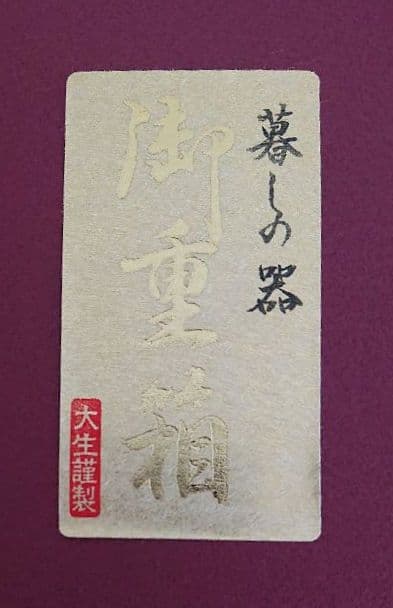 暮しの器
御重箱
大生謹製